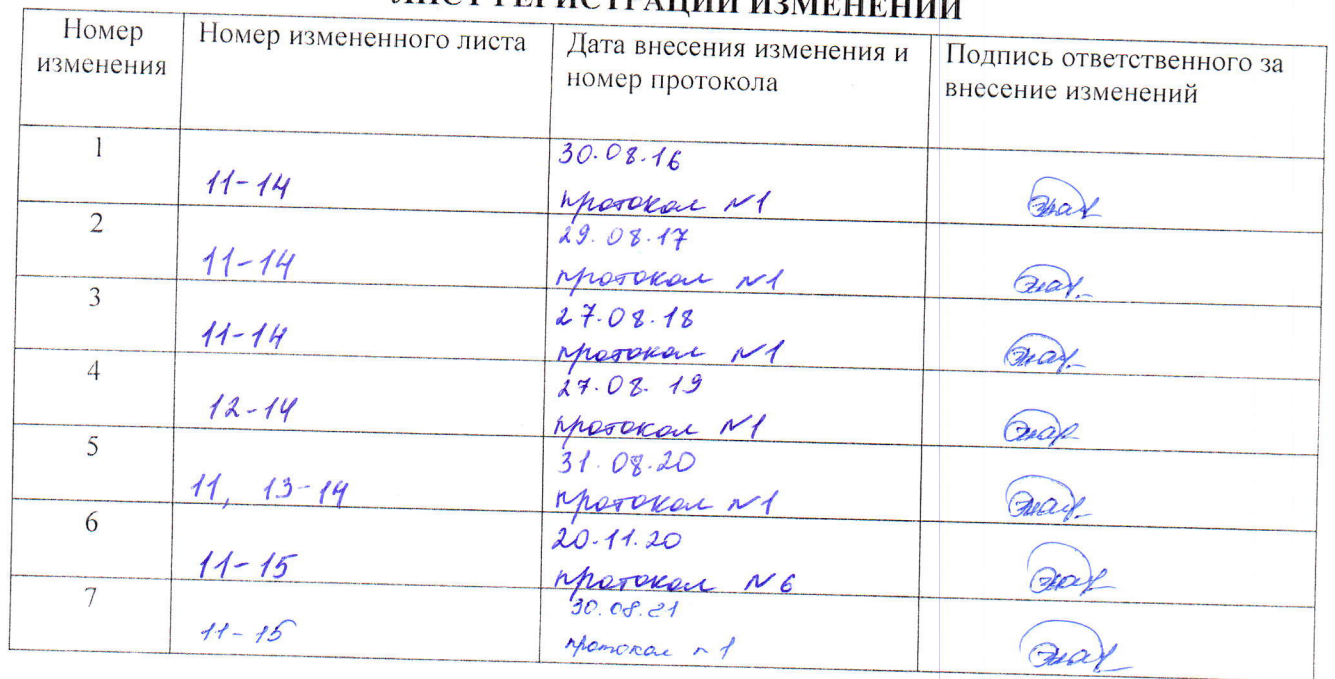 ЛИСТ РЕГИСТРАЦИИ ИЗМЕНЕНИЙ
Номер изменения
Номер измененного листа
Дата внесения изменения и номер протокола
Подпись ответственного за внесение изменений
1
11-14
30.08.16
протокол №1
2
11-14
29.08.17
протокол №1
3
11-14
27.08.18
протокол №1
4
12-14
27.08.19
протокол №1
5
11, 13-14
31.08.20
протокол №1
6
11-15
20.11.20
протокол №6
7
11-15
30.08.21
протокол №1